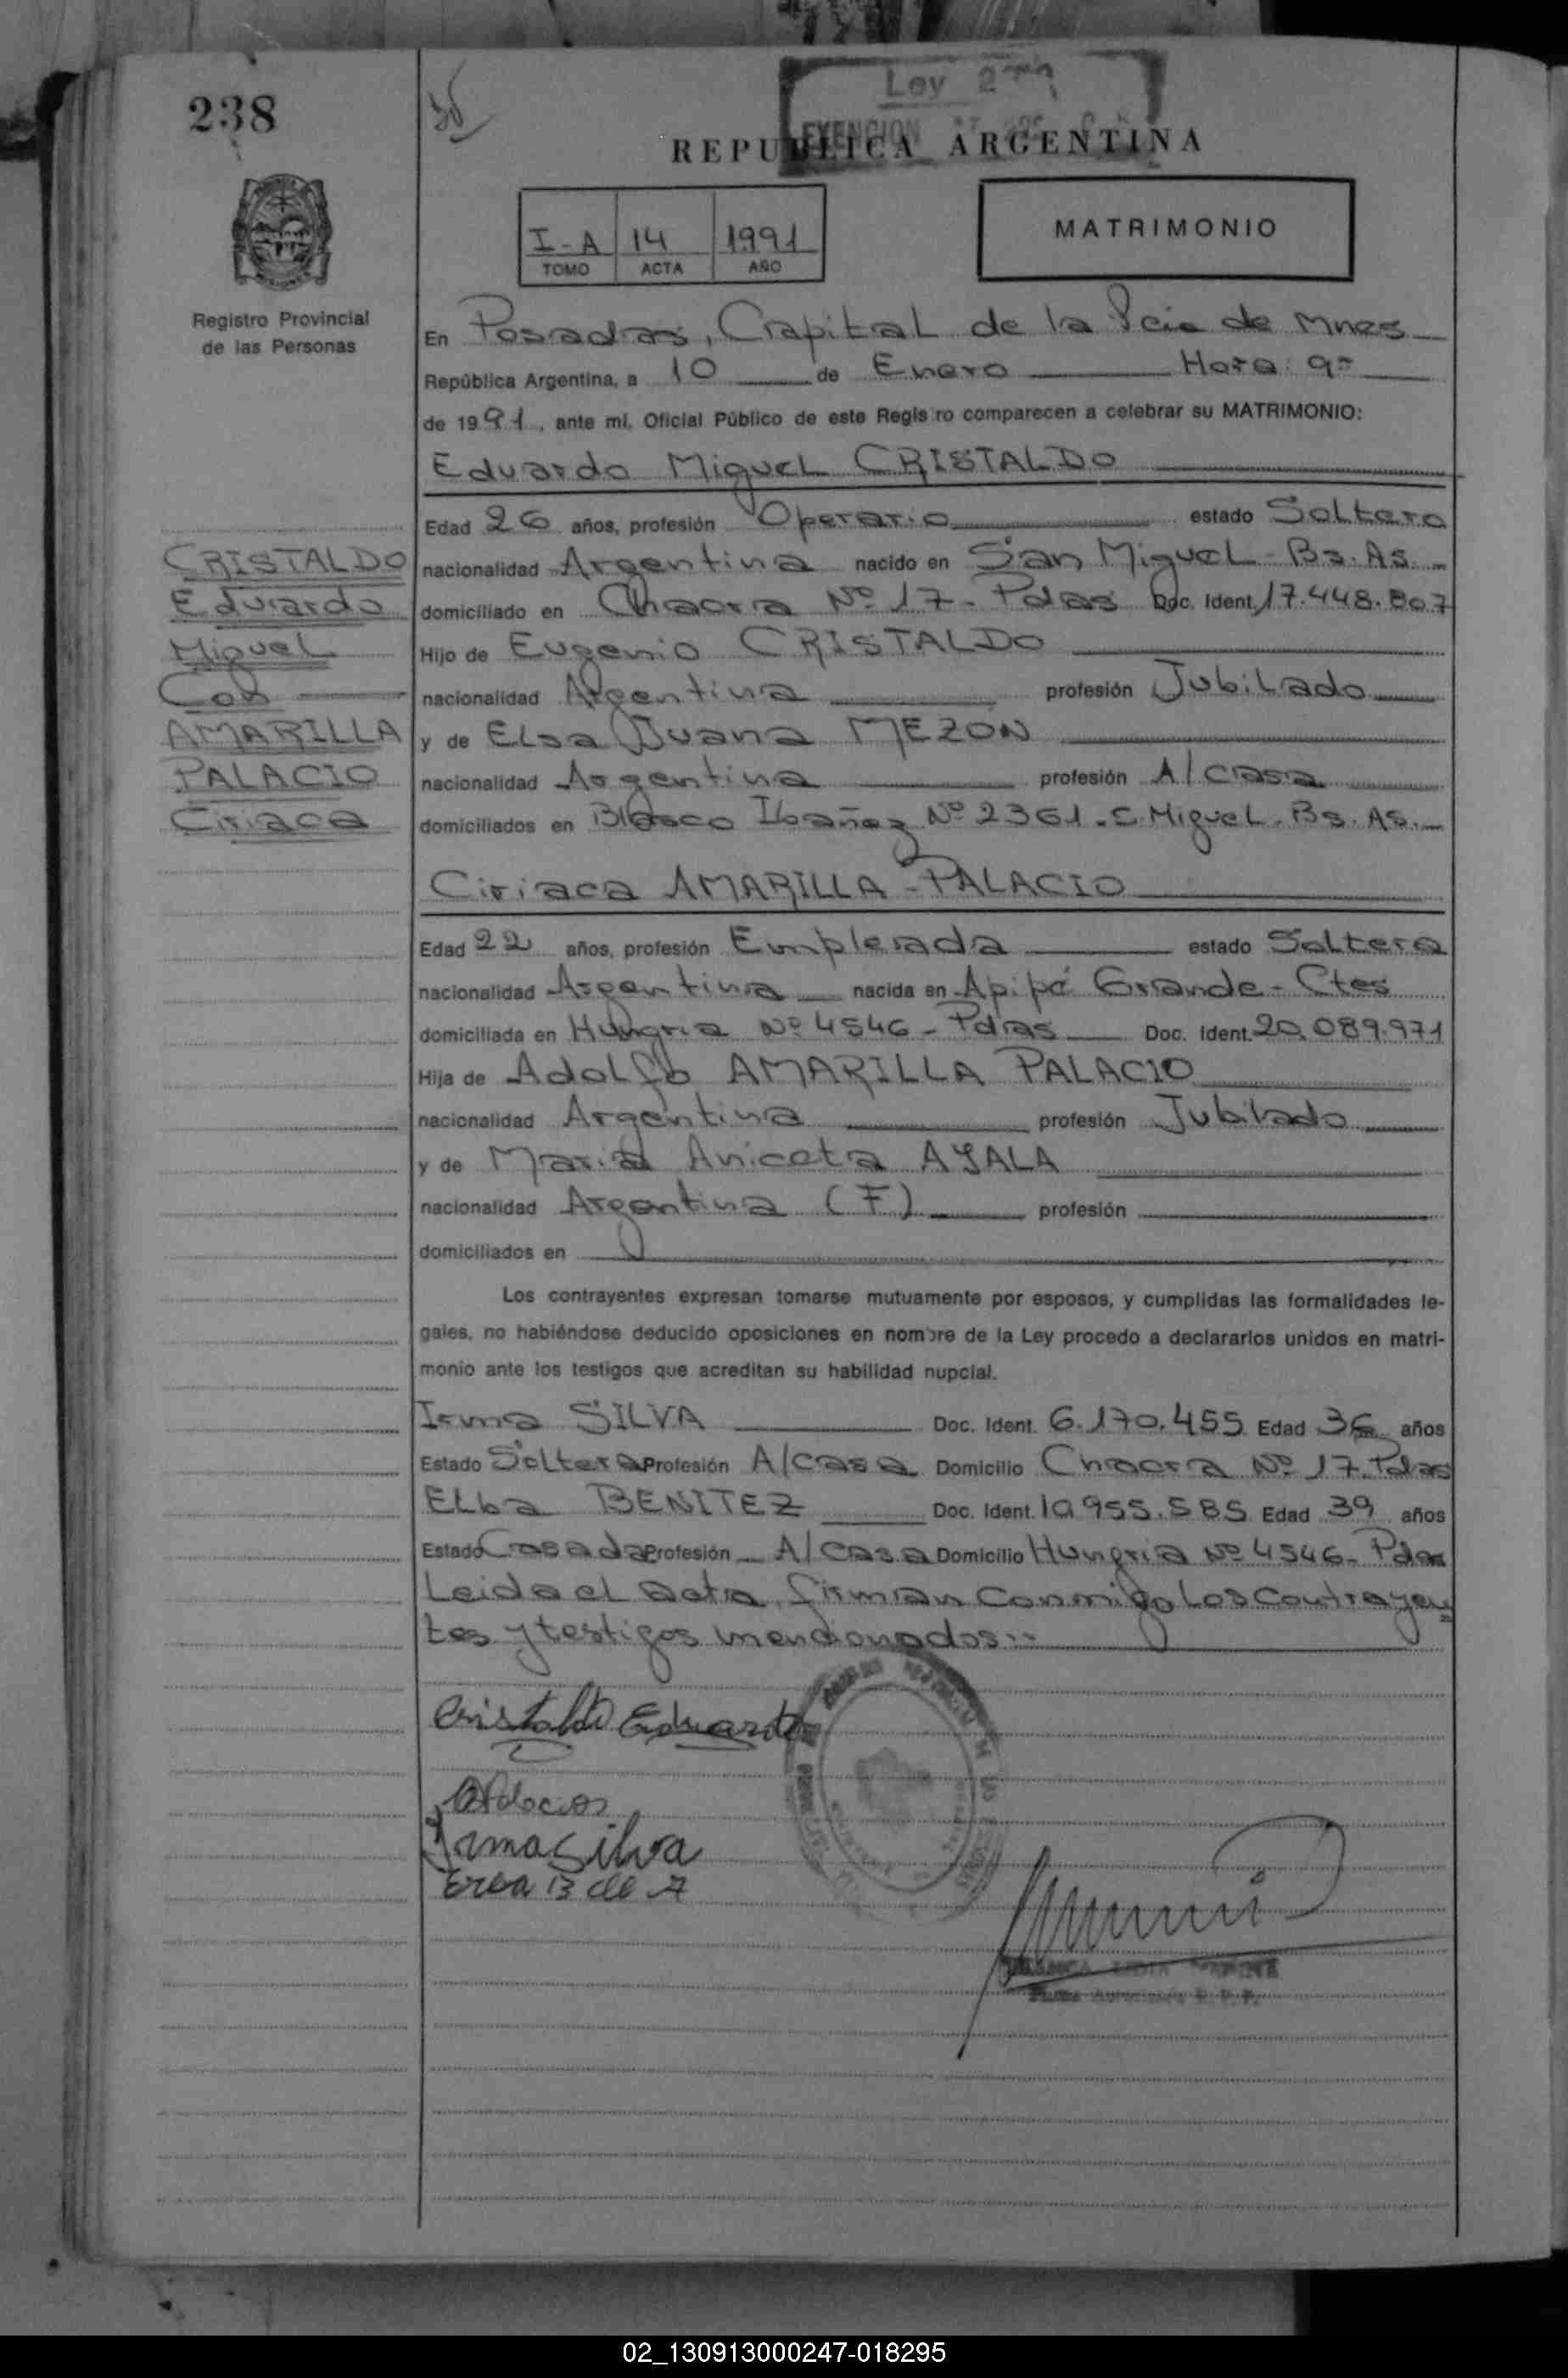 238
Ley
EXENCION
REPUBLICA ARGENTINA
I-A 14 1991
TOMO ACTA AÑO
MATRIMONIO
Registro Provincial
de las Personas
En Posadas, Capital de la Pcia de Mnes
República Argentina, a 10 de Enero Hora: 9
de 1991, ante mí, Oficial Público de este Registro comparecen a celebrar su MATRIMONIO:
Eduardo Miguel CRISTALDO
Edad 26 años, profesión Operario estado Soltero
nacionalidad Argentina nacido en San Miguel - Bs. As.
domiciliado en Chacra Nº 17 - Pdas Doc. Ident. 17.448.807
Hijo de Eugenio CRISTALDO
nacionalidad Argentina profesión Jubilado
y de Elsa Juana MEZON
nacionalidad Argentina profesión A/casa
domiciliados en Blasco Ibañez Nº 2361 - S. Miguel - Bs. As.
CRISTALDO
Eduardo
Miguel
Con
AMARILLA
PALACIO
Ciriaca
Ciriaca AMARILLA - PALACIO
Edad 22 años, profesión Empleada estado Soltera
nacionalidad Argentina nacida en Apipé Grande - Ctes
domiciliada en Hungria Nº 4546 - Pdas Doc. Ident. 20.089.971
Hija de Adolfo AMARILLA PALACIO
nacionalidad Argentina profesión Jubilado
y de Maria Aniceta AYALA
nacionalidad Argentina (F) profesión
domiciliados en
Los contrayentes expresan tomarse mutuamente por esposos, y cumplidas las formalidades le-
gales, no habiéndose deducido oposiciones en nombre de la Ley procedo a declararlos unidos en matri-
monio ante los testigos que acreditan su habilidad nupcial.
Irma SILVA Doc. Ident. 6.170.455 Edad 36 años
Estado Soltera Profesión A/casa Domicilio Chacra Nº 17. Pdas
Elba BENITEZ Doc. Ident. 10.955.585 Edad 39 años
Estado Casada Profesión A/casa Domicilio Hungria Nº 4546 - Pdas
Leida el acta, firman conmigo los contrayen=
tes y testigos mencionados..
Cristaldo Eduardo
Irma Silva
02_130913000247-018295